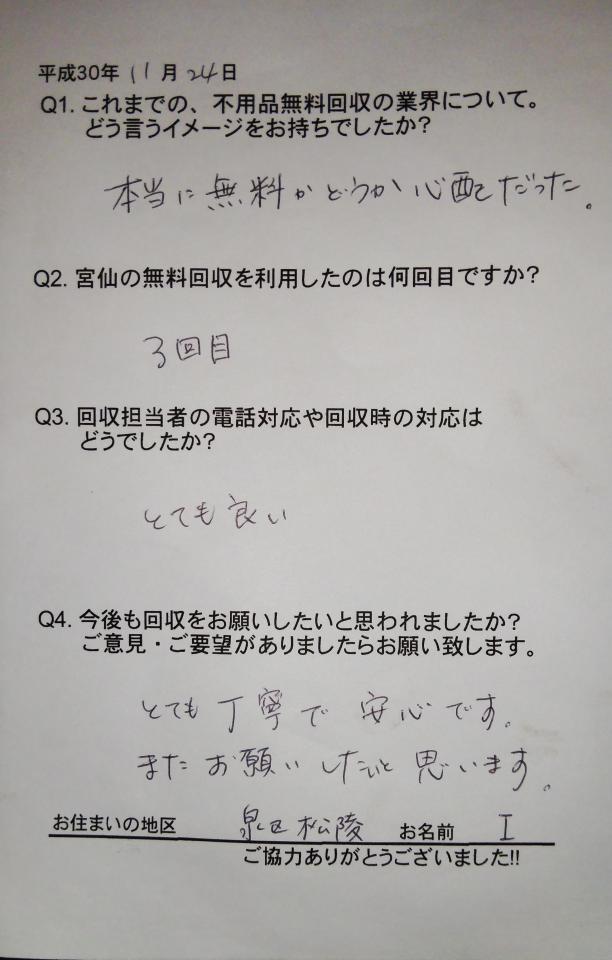 平成30年 11月 24日
Q1. これまでの、不用品無料回収の業界について。
どう言うイメージをお持ちでしたか?
本当に無料かどうか心配だった。
Q2. 宮仙の無料回収を利用したのは何回目ですか?
3回目
Q3. 回収担当者の電話対応や回収時の対応は
どうでしたか?
とても良い
Q4. 今後も回収をお願いしたいと思われましたか?
ご意見・ご要望がありましたらお願い致します。
とても丁寧で 安心です。
またお願いしたいと思います。
お住まいの地区 泉区松陵 お名前 I
ご協力ありがとうございました!!